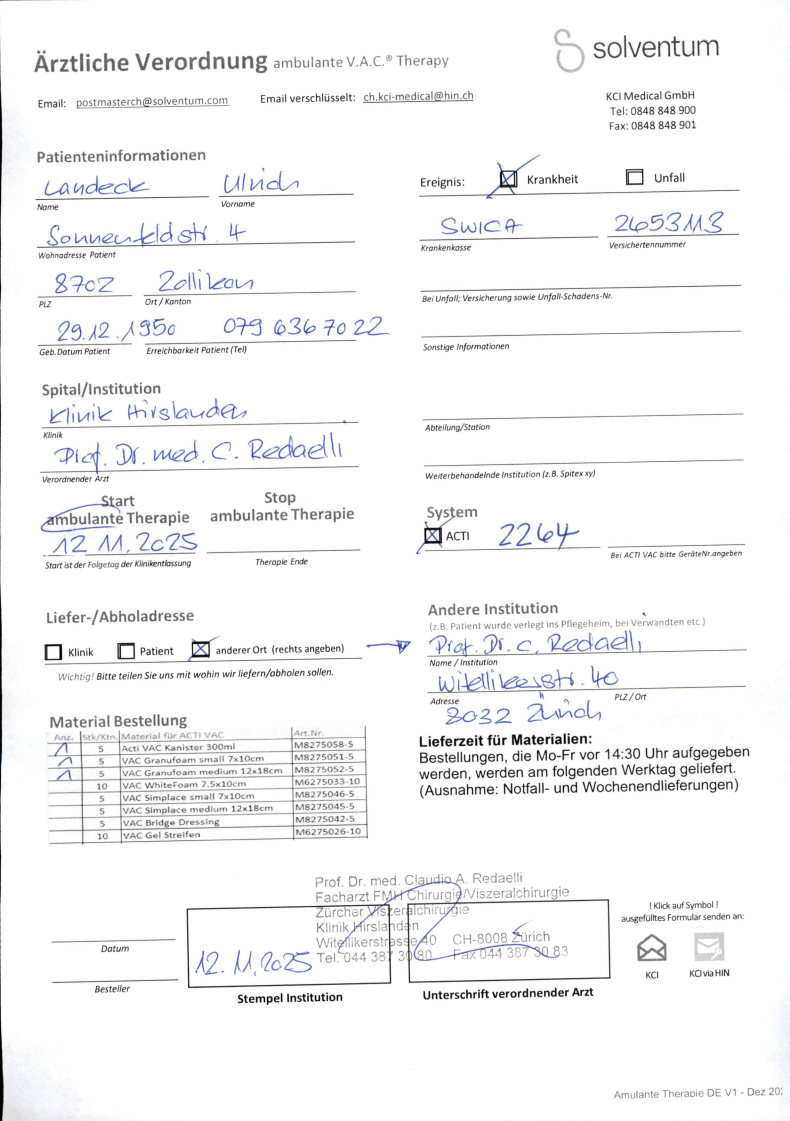 Ärztliche Verordnung ambulante V.A.C.® Therapy
solventum
Email: postmasterch@solventum.com Email verschlüsselt: ch.kci-medical@hin.ch
KCI Medical GmbH
Tel: 0848 848 900
Fax: 0848 848 901
Patienteninformationen
Landeck Ulrich
Name Vorname
Sonnenfeldstr. 4
Wohnadresse Patient
8702 Zollikon
PLZ Ort / Kanton
29.12.1950 079 636 70 22
Geb.Datum Patient Erreichbarkeit Patient (Tel)
Ereignis: Krankheit Unfall
SWICA 2653113
Krankenkasse Versichertennummer
Bei Unfall; Versicherung sowie Unfall-Schadens-Nr.
Sonstige Informationen
Spital/Institution
Klinik Hirslanden
Klinik
Prof. Dr. med. C. Redaelli
Verordnender Arzt
Abteilung/Station
Weiterbehandelnde Institution (z.B. Spitex xy)
Start Stop
ambulante Therapie ambulante Therapie
12 11.2025
Start ist der Folgetag der Klinikentlassung Therapie Ende
System
ACTI 2264
Bei ACTI VAC bitte GeräteNr.angeben
Liefer-/Abholadresse
Klinik Patient anderer Ort (rechts angeben)
Wichtig! Bitte teilen Sie uns mit wohin wir liefern/abholen sollen.
Andere Institution
(z.B. Patient wurde verlegt ins Pflegeheim, bei Verwandten etc.)
Prof. Dr. C. Redaelli
Name / Institution
Witellikerstr. 40
Adresse PLZ / Ort
8032 Zürich
Material Bestellung
Anz. Stk/Ktn. Material für ACTI VAC Art.Nr.
1 5 Acti VAC Kanister 300ml M8275058-5
1 5 VAC Granufoam small 7x10cm M8275051-5
1 5 VAC Granufoam medium 12x18cm M8275052-5
10 VAC WhiteFoam 7.5x10cm M6275033-10
5 VAC Simplace small 7x10cm M8275046-5
5 VAC Simplace medium 12x18cm M8275045-5
5 VAC Bridge Dressing M8275042-5
10 VAC Gel Streifen M6275026-10
Lieferzeit für Materialien:
Bestellungen, die Mo-Fr vor 14:30 Uhr aufgegeben
werden, werden am folgenden Werktag geliefert.
(Ausnahme: Notfall- und Wochenendlieferungen)
Prof. Dr. med. Claudio A. Redaelli
Facharzt FMH Chirurgie/Viszeralchirurgie
Zürcher Viszeralchirurgie
Klinik Hirslanden
Witellikerstrasse 40 CH-8008 Zürich
Tel. 044 387 30 80 Fax 044 387 30 83
12.11.2025
Datum
Besteller
Stempel Institution
Unterschrift verordnender Arzt
! Klick auf Symbol !
ausgefülltes Formular senden an:
KCI KCI via HIN
Amulante Therapie DE V1 - Dez 202